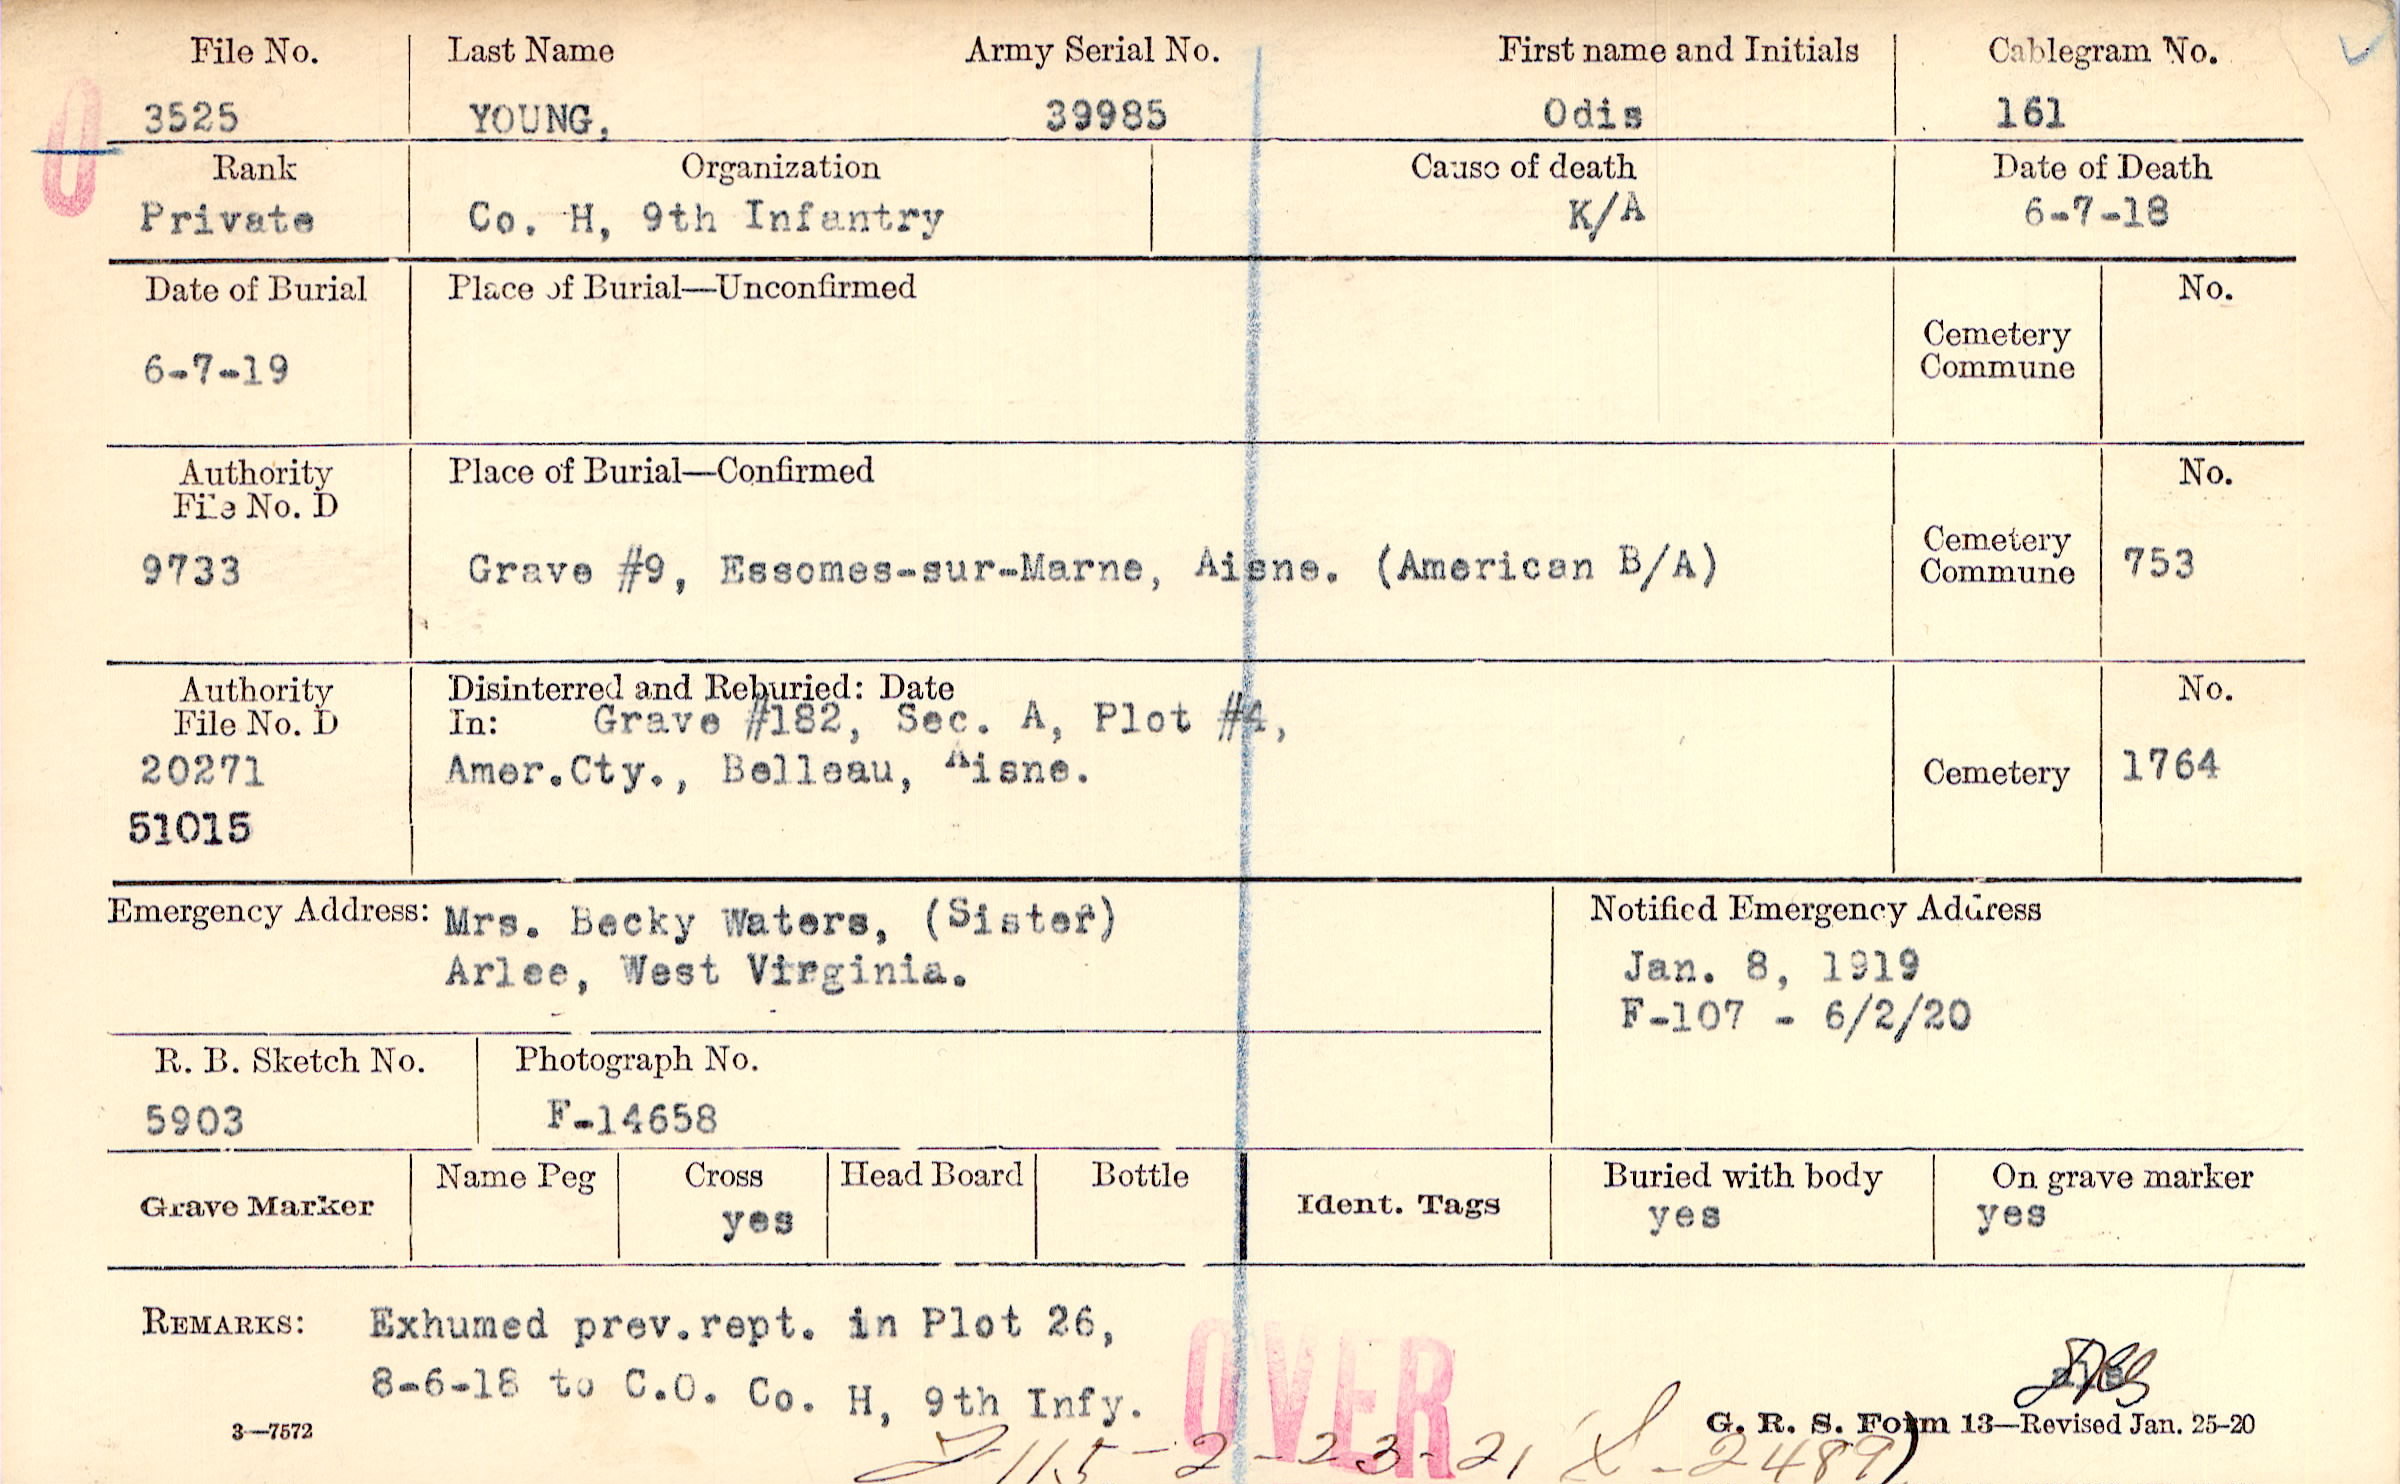 File No. Last Name Army Serial No. First name and Initials Cablegram No.
3525 YOUNG, 39985 Odis 161
Rank Organization Cause of death Date of Death
Private Co. H, 9th Infantry K/A 6-7-18
Date of Burial Place of Burial—Unconfirmed No.
Cemetery
Commune
6-7-19
Authority Place of Burial—Confirmed No.
File No. D
Cemetery
9733 Grave #9, Essomes-sur-Marne, Aisne. (American B/A) Commune 753
Authority Disinterred and Reburied: Date No.
File No. D In: Grave #182, Sec. A, Plot #4,
20271 Amer.Cty., Belleau, Aisne. Cemetery 1764
51015
Emergency Address: Mrs. Becky Waters, (Sister) Notified Emergency Address
Arlee, West Virginia. Jan. 8, 1919
F-107 - 6/2/20
R. B. Sketch No. Photograph No.
5903 F-14658
Name Peg Cross Head Board Bottle Buried with body On grave marker
Grave Marker yes Ident. Tags yes yes
REMARKS: Exhumed prev.rept. in Plot 26,
8-6-18 to C.O. Co. H, 9th Infy.
OVER
3—7572 G. R. S. Form 13—Revised Jan. 25-20
115-2-23-21